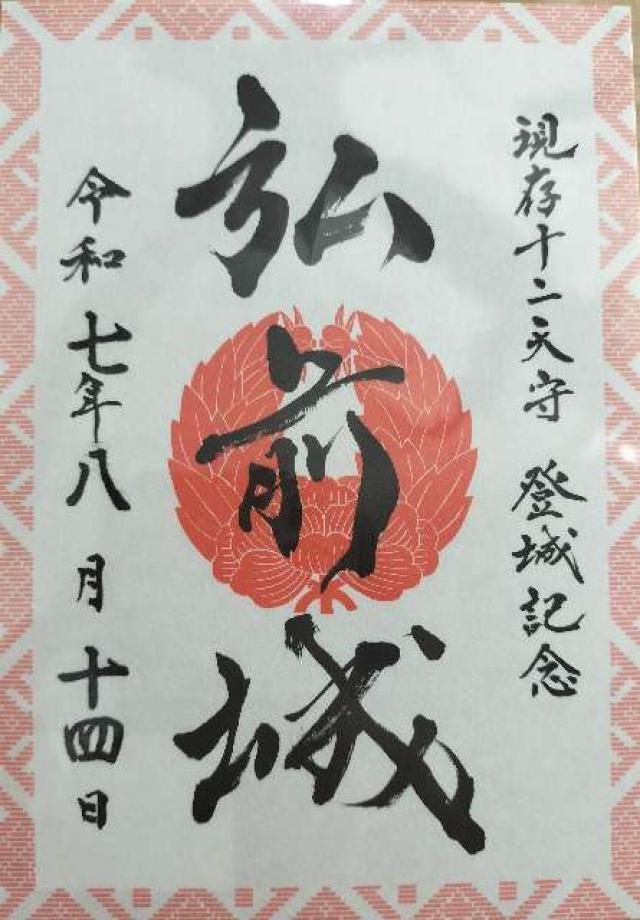 現存十二天守 登城記念
弘前城
令和七年八月十四日